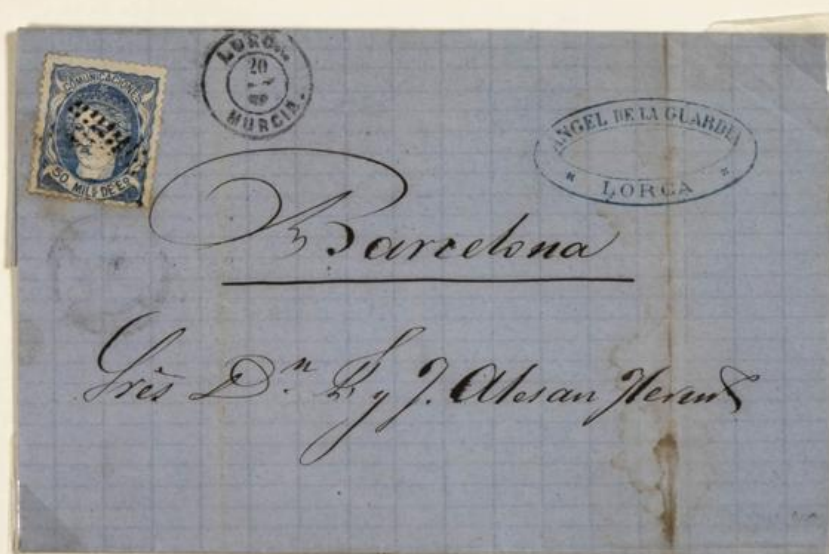 COMUNICACIONES
50 MILS DE ES
LORCA
20
MURCIA.
ANGEL DE LA GUARDIA
* LORCA *
Barcelona
Srēs Dn. P y J. Alesan